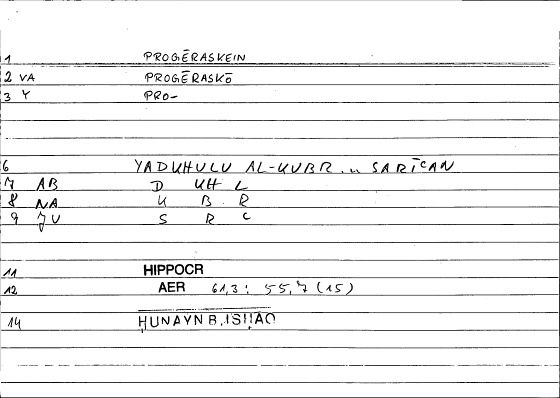 1 PROGĒRASKEIN
2 VA PROGĒRASKŌ
3 Y PRO-
6 YADUHULU AL-KUBR .. SARĪCAN
7 AB D UH L
8 NA K B R
9 JU S R C
11 HIPPOCR
12 AER 61,3 : 55,7 (15)
14 ḤUNAYN B. ISḤĀQ